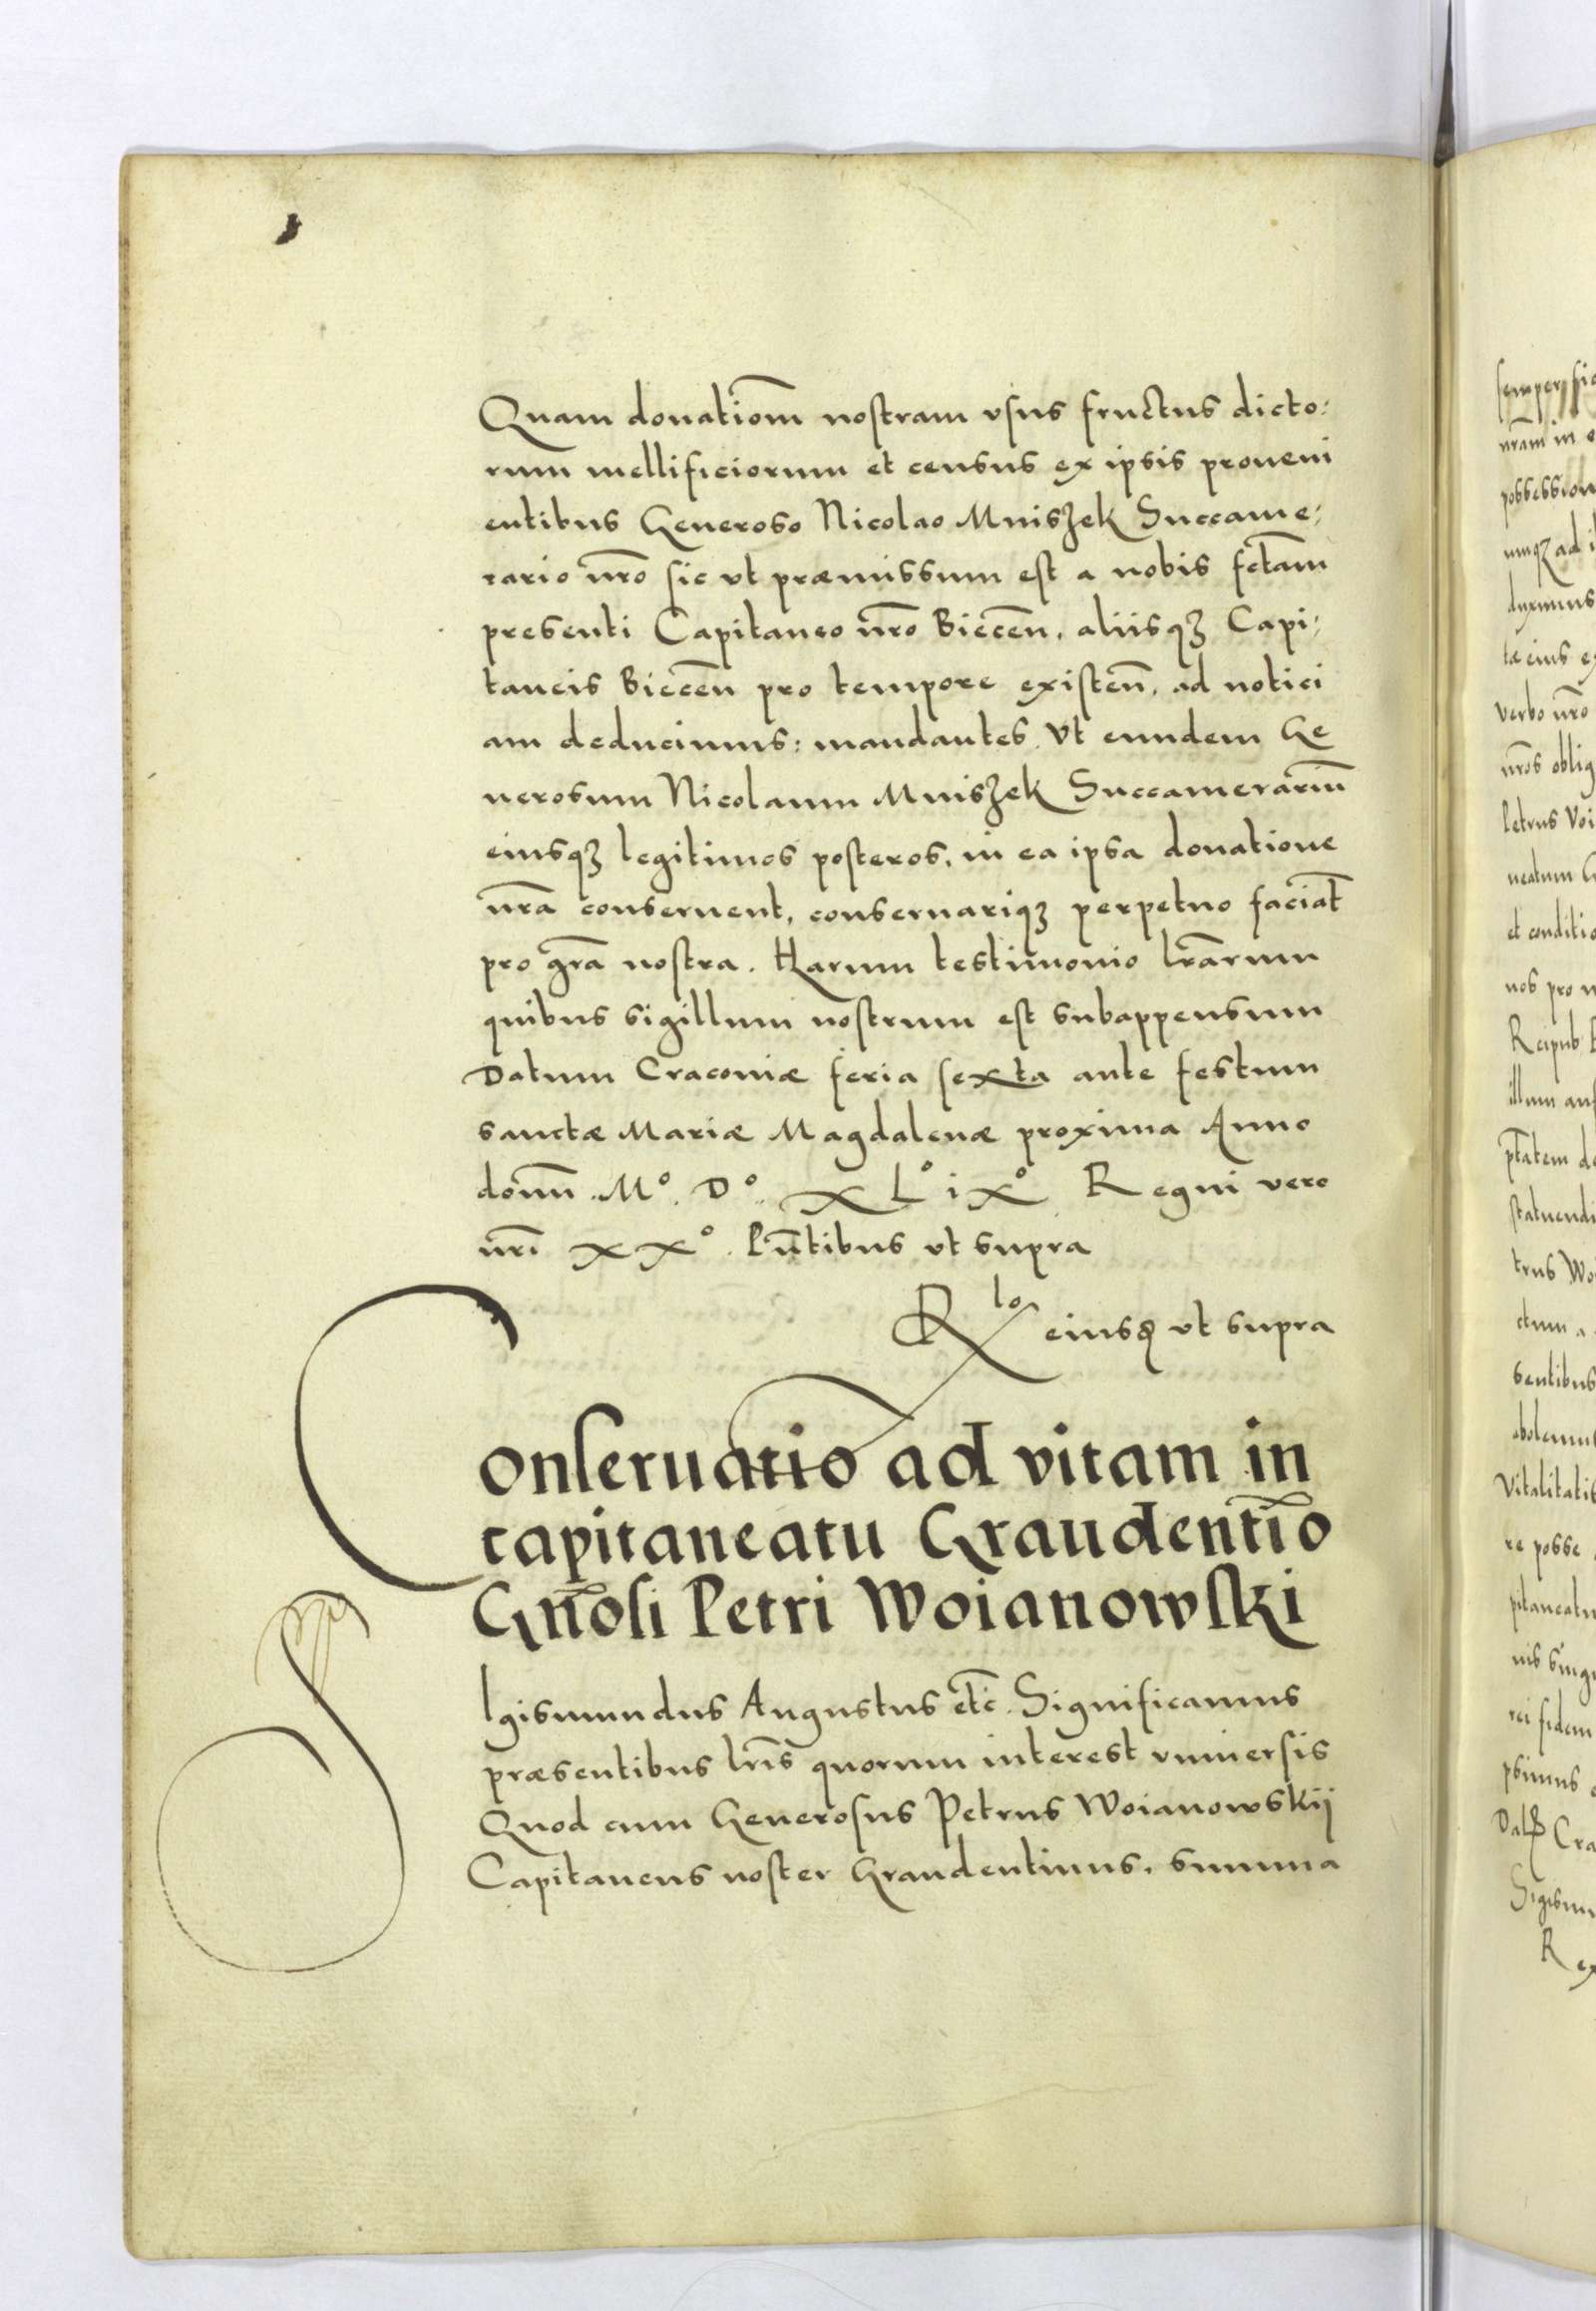 Quam donatiōm nostram vsus fructus dicto:
rum mellificiorum et census ex ipsis proueni
entibus Generoso Nicolao Mniszek Succame:
rario nr̄o sic vt præmissum est a nobis fct̄am
presenti Capitaneo nr̄o Biecen̄. aliisqꝫ Capi:
taneis Biecen̄ pro tempore existen̄. ad notici
am deducimus: mandantes. Vt eundem Ge
nerosum Nicolaum Mniszek Succamerariū
eiusqꝫ legitimos posteros, in ea ipsa donatione
nr̄a conseruent, conseruariqꝫ perpetuo faciāt
pro gr̄a nostra. Harum testimonio lr̄arum
quibus sigillum nostrum est subappensum
Datum Cracouiæ feria sexta ante festum
sanctæ Mariæ Magdalenæ proxima Anno
domī. Mº. Dº. XLº iXº. Regni vero
nr̄i XXº. Pn̄tibus vt supra
Rlo eiusꝗ vt supra
Conseruatio ad vitam in
capitaneatu Graudentīo
Gn̄osi Petri Woianowski
SIgismundus Augustus etc̄. Significamus
præsentibus lr̄is quorum interest vniuersis
Quod cum Generosus Petrus Woianowskij
Capitaneus noster Graudentinus, summa
semper
nr̄am in
possession
umqꝫ ad
duximus
tæ eius
Verbo nr̄o
nr̄os oblig
Petrus Voi
neatum
et conditio
nos pro
Reipub
illum
pt̄atem
statuendi
trus Wo
ctum a
sentibus
abolemus
Vitalitatis
re posse
pitaneatu
nis
rei fidem
Dat Cra
Sigism
Rex